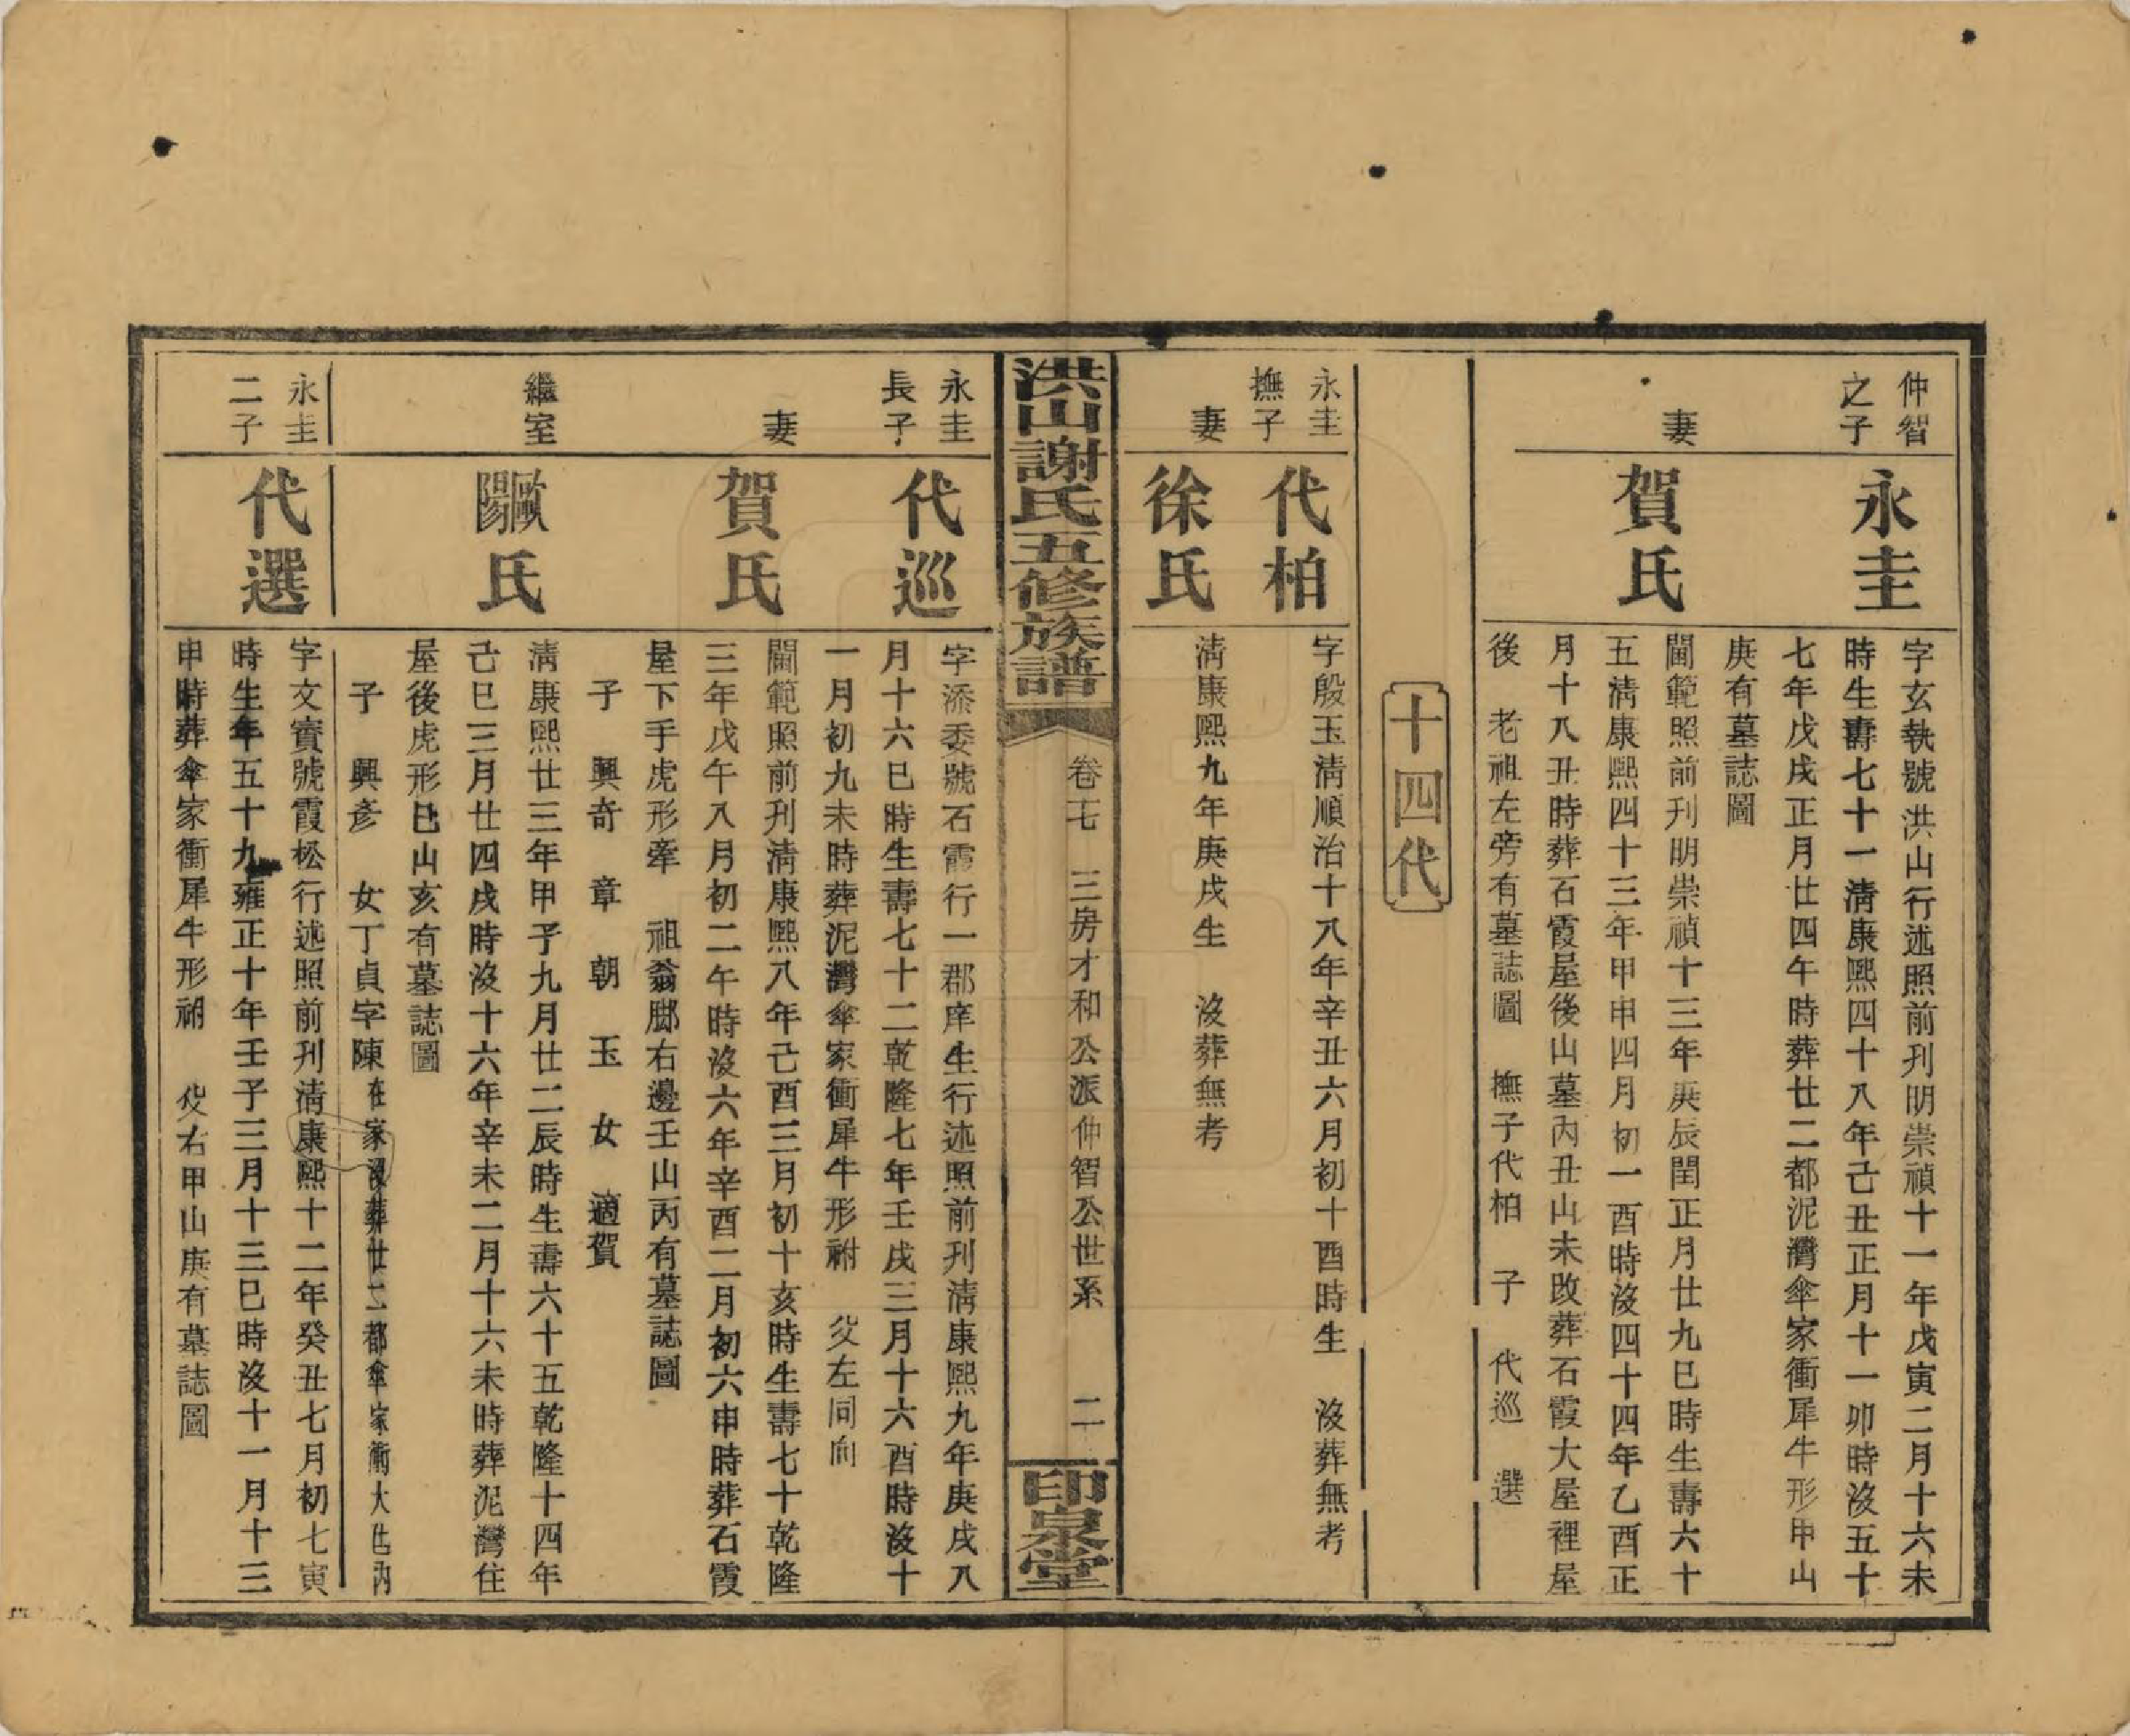 仲智
之子
永圭
字玄執號洪山行述照前刋明崇禎十一年戊寅二月十六未
時生壽七十一淸康熙四十八年己丑正月十一卯時沒五十
七年戊戌正月廿四午時葬廿二都泥灣傘家衝犀牛形甲山
庚有墓誌圖
妻
賀氏
閫範照前刋明崇禎十三年庚辰閏正月廿九巳時生壽六十
五淸康熙四十三年甲申四月初一酉時沒四十四年乙酉正
月十八丑時葬石霞屋後山墓內丑山未改葬石霞大屋裡屋
後 老祖左旁有墓誌圖 撫子代柏 子 代巡 選
十四代
永圭
撫子
代柏
字殷玉淸順治十八年辛丑六月初十酉時生 沒葬無考
妻
徐氏
淸康熙九年庚戌生 沒葬無考
洪山謝氏五修族譜
卷七 三房才和公派仲智公世系 二
印泉堂
永圭
長子
代巡
字添委號石霞行一郡庠生行述照前刋淸康熙九年庚戌八
月十六巳時生壽七十二乾隆七年壬戌三月十六酉時沒十
一月初九未時葬泥灣傘家衝犀牛形祔 父左同向
妻
賀氏
閫範照前刋淸康熙八年己酉三月初十亥時生壽七十乾隆
三年戊午八月初二午時沒六年辛酉二月初六申時葬石霞
屋下手虎形牽 祖翁脚右邊壬山丙有墓誌圖
子 興奇 章 朝 玉 女 適賀
繼室
歐陽氏
淸康熙廿三年甲子九月廿二辰時生壽六十五乾隆十四年
己巳三月廿四戌時沒十六年辛未二月十六未時葬泥灣住
屋後虎形巳山亥有墓誌圖
子 興彥 女丁貞字陳在家沒葬廿二都傘家衝大丘內
永圭
二子
代選
字文寶號霞松行述照前刋淸康熙十二年癸丑七月初七寅
時生年五十九雍正十年壬子三月十三巳時沒十一月十三
申時葬傘家衝犀牛形祔 父右甲山庚有墓誌圖